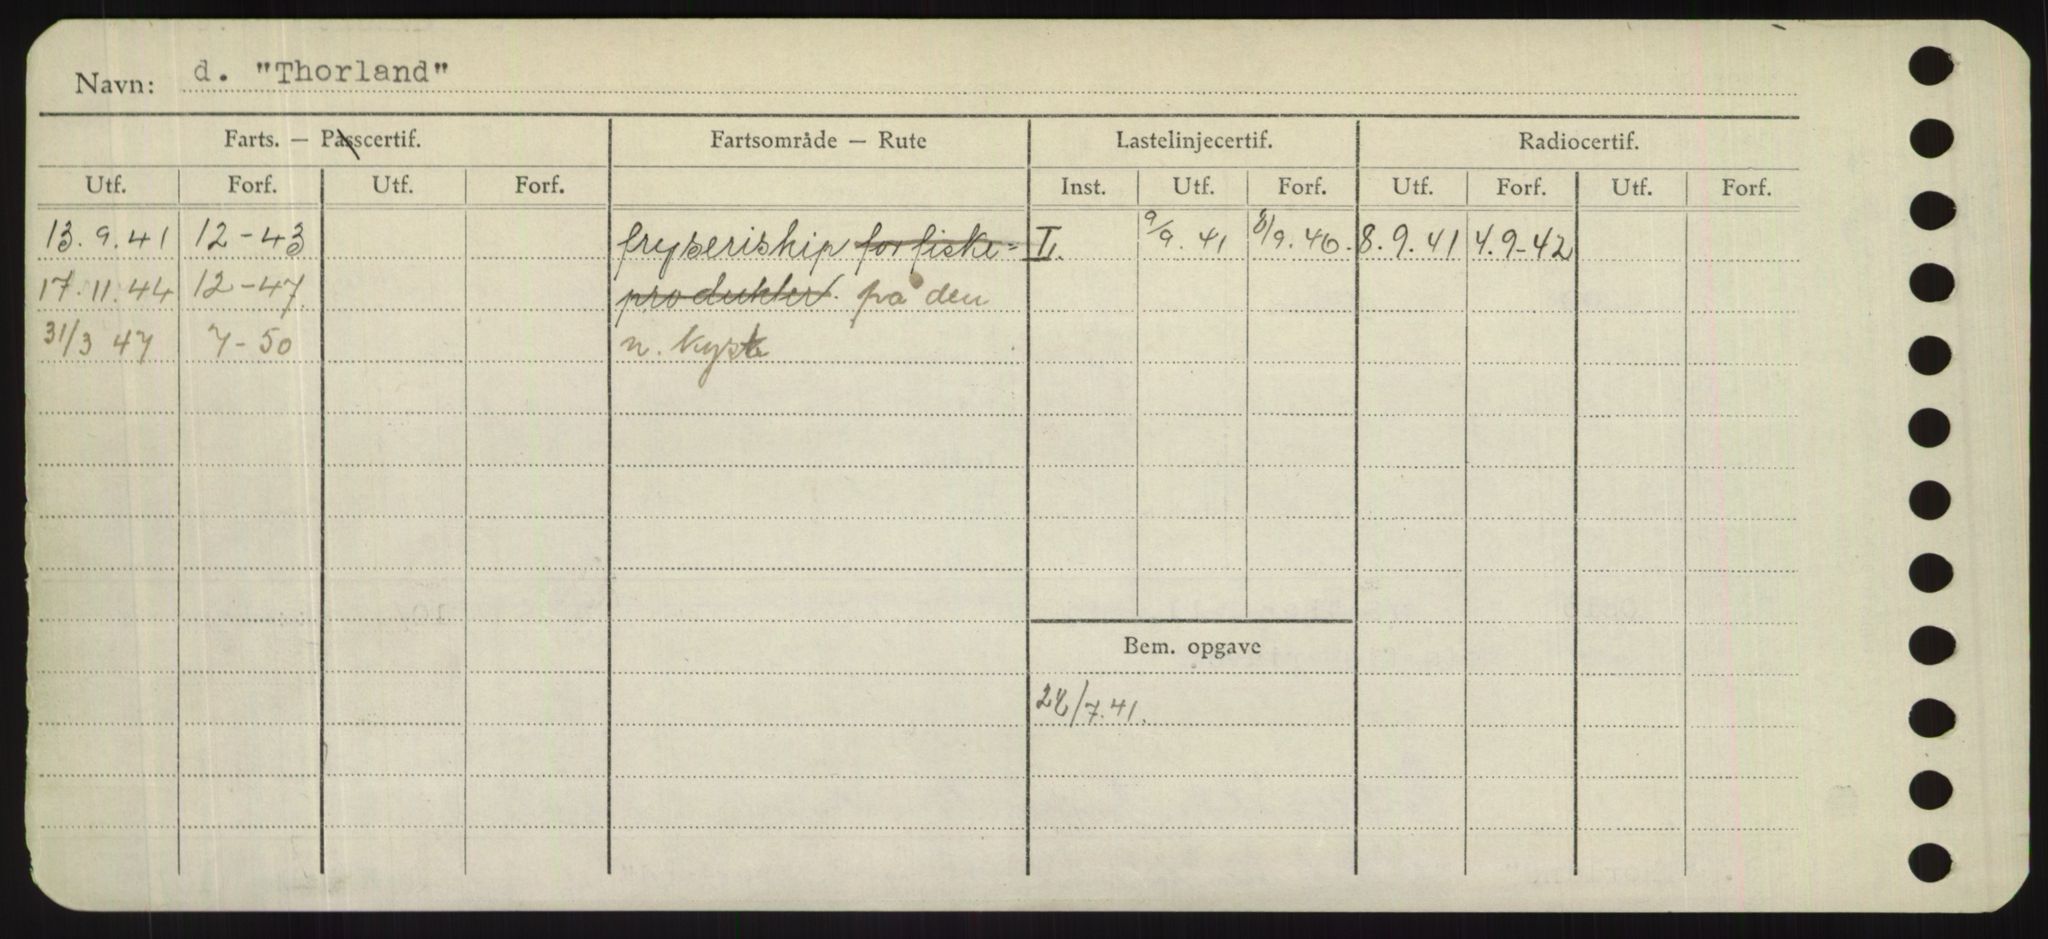 Navn: d. "Thorland"
Farts. — Passcertif. Fartsområde — Rute Lastelinjecertif. Radiocertif.
Utf. Forf. Utf. Forf. Inst. Utf. Forf. Utf. Forf. Utf. Forf.
13.9.41 12-43 fryseriskip for fiske- I. 9/9.41 8/9.46. 8.9.41 4.9-42
17.11.44 12-47 produkter. på den
31/3 47 7-50 n. kyst
Bem. opgave
/7.41.